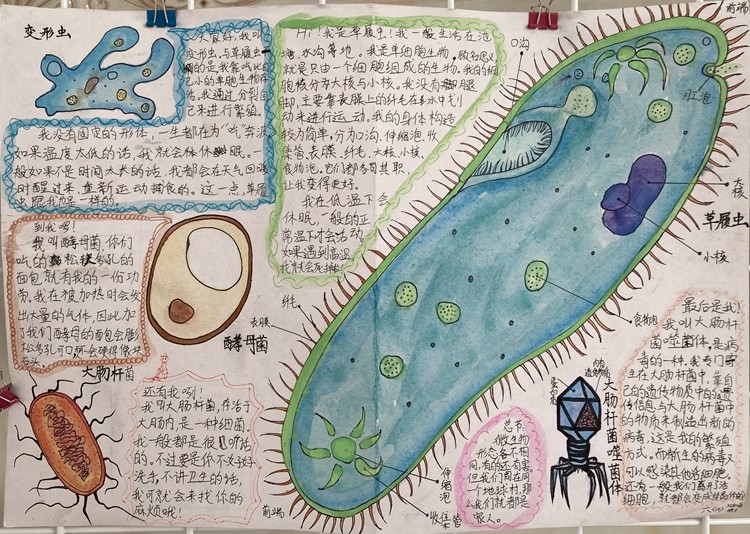 变形虫
大家好，我叫
变形虫，与草履虫一
来进行繁殖。
我没有固定的形体，一生都在为“吃”奔波
如果温度太低的话，我就会休眠。一
般如果不是时间太长的话，我都会在天气回暖
时醒过来，重新运动捕食的。这一点，草履
虫跟我也是一样的。
Hi！我是草履虫！我一般生活在池
塘、水沟等地。我是单细胞生物。顾名思义
就是只由一个细胞组成的生物。我的细
胞核分为大核与小核。我没有腿
脚，主要靠表膜上的纤毛在水中划
动来进行运动。我的身体构造
较为简单，分为口沟、伸缩泡、收
集管、表膜、纤毛、大核、小核、
食物泡。它们都各司其职
让我变得更好。
我在低温下会
休眠，一般的正
常温下才会活动
如果遇到高温
我就会死掉
到我啦！
我叫酵母菌，你们
吃的松软多孔的
面包就有我的一份功
劳。我在被加热时会发
出大量的气体，因此加
了我们酵母的面包会膨
松多孔可口，不会硬得像块
石头。
酵母菌
大肠杆菌
还有我咧！
我叫大肠杆菌，存活于
大肠内，是一种细菌。
我一般都是很听话
的。不过要是你不好好
洗手，不讲卫生的话，
我可就会来找你的
麻烦哦！
前端
口沟
肛泡
大核
草履虫
小核
食物泡
纤毛
表膜
伸缩泡
收集管
前端
总节：
微生物
形态各不相
同，有的还有害。
但我们同在同
一个地球村，那
么我们就都是
家人。
蛋白质
遗传物质
大肠杆菌噬菌体
最后是我！
我叫大肠杆
菌噬菌体，是病
毒的一种。我专门寄
生在大肠杆菌中，靠自
己的遗传物质中的遗
传信息，与大肠杆菌中
的物质来制造出新的
病毒，这是我的繁殖
方式。而新生的病毒又
可以感染其他活细胞。
还有一般我们离开了活
细胞，就都会变成结晶体的